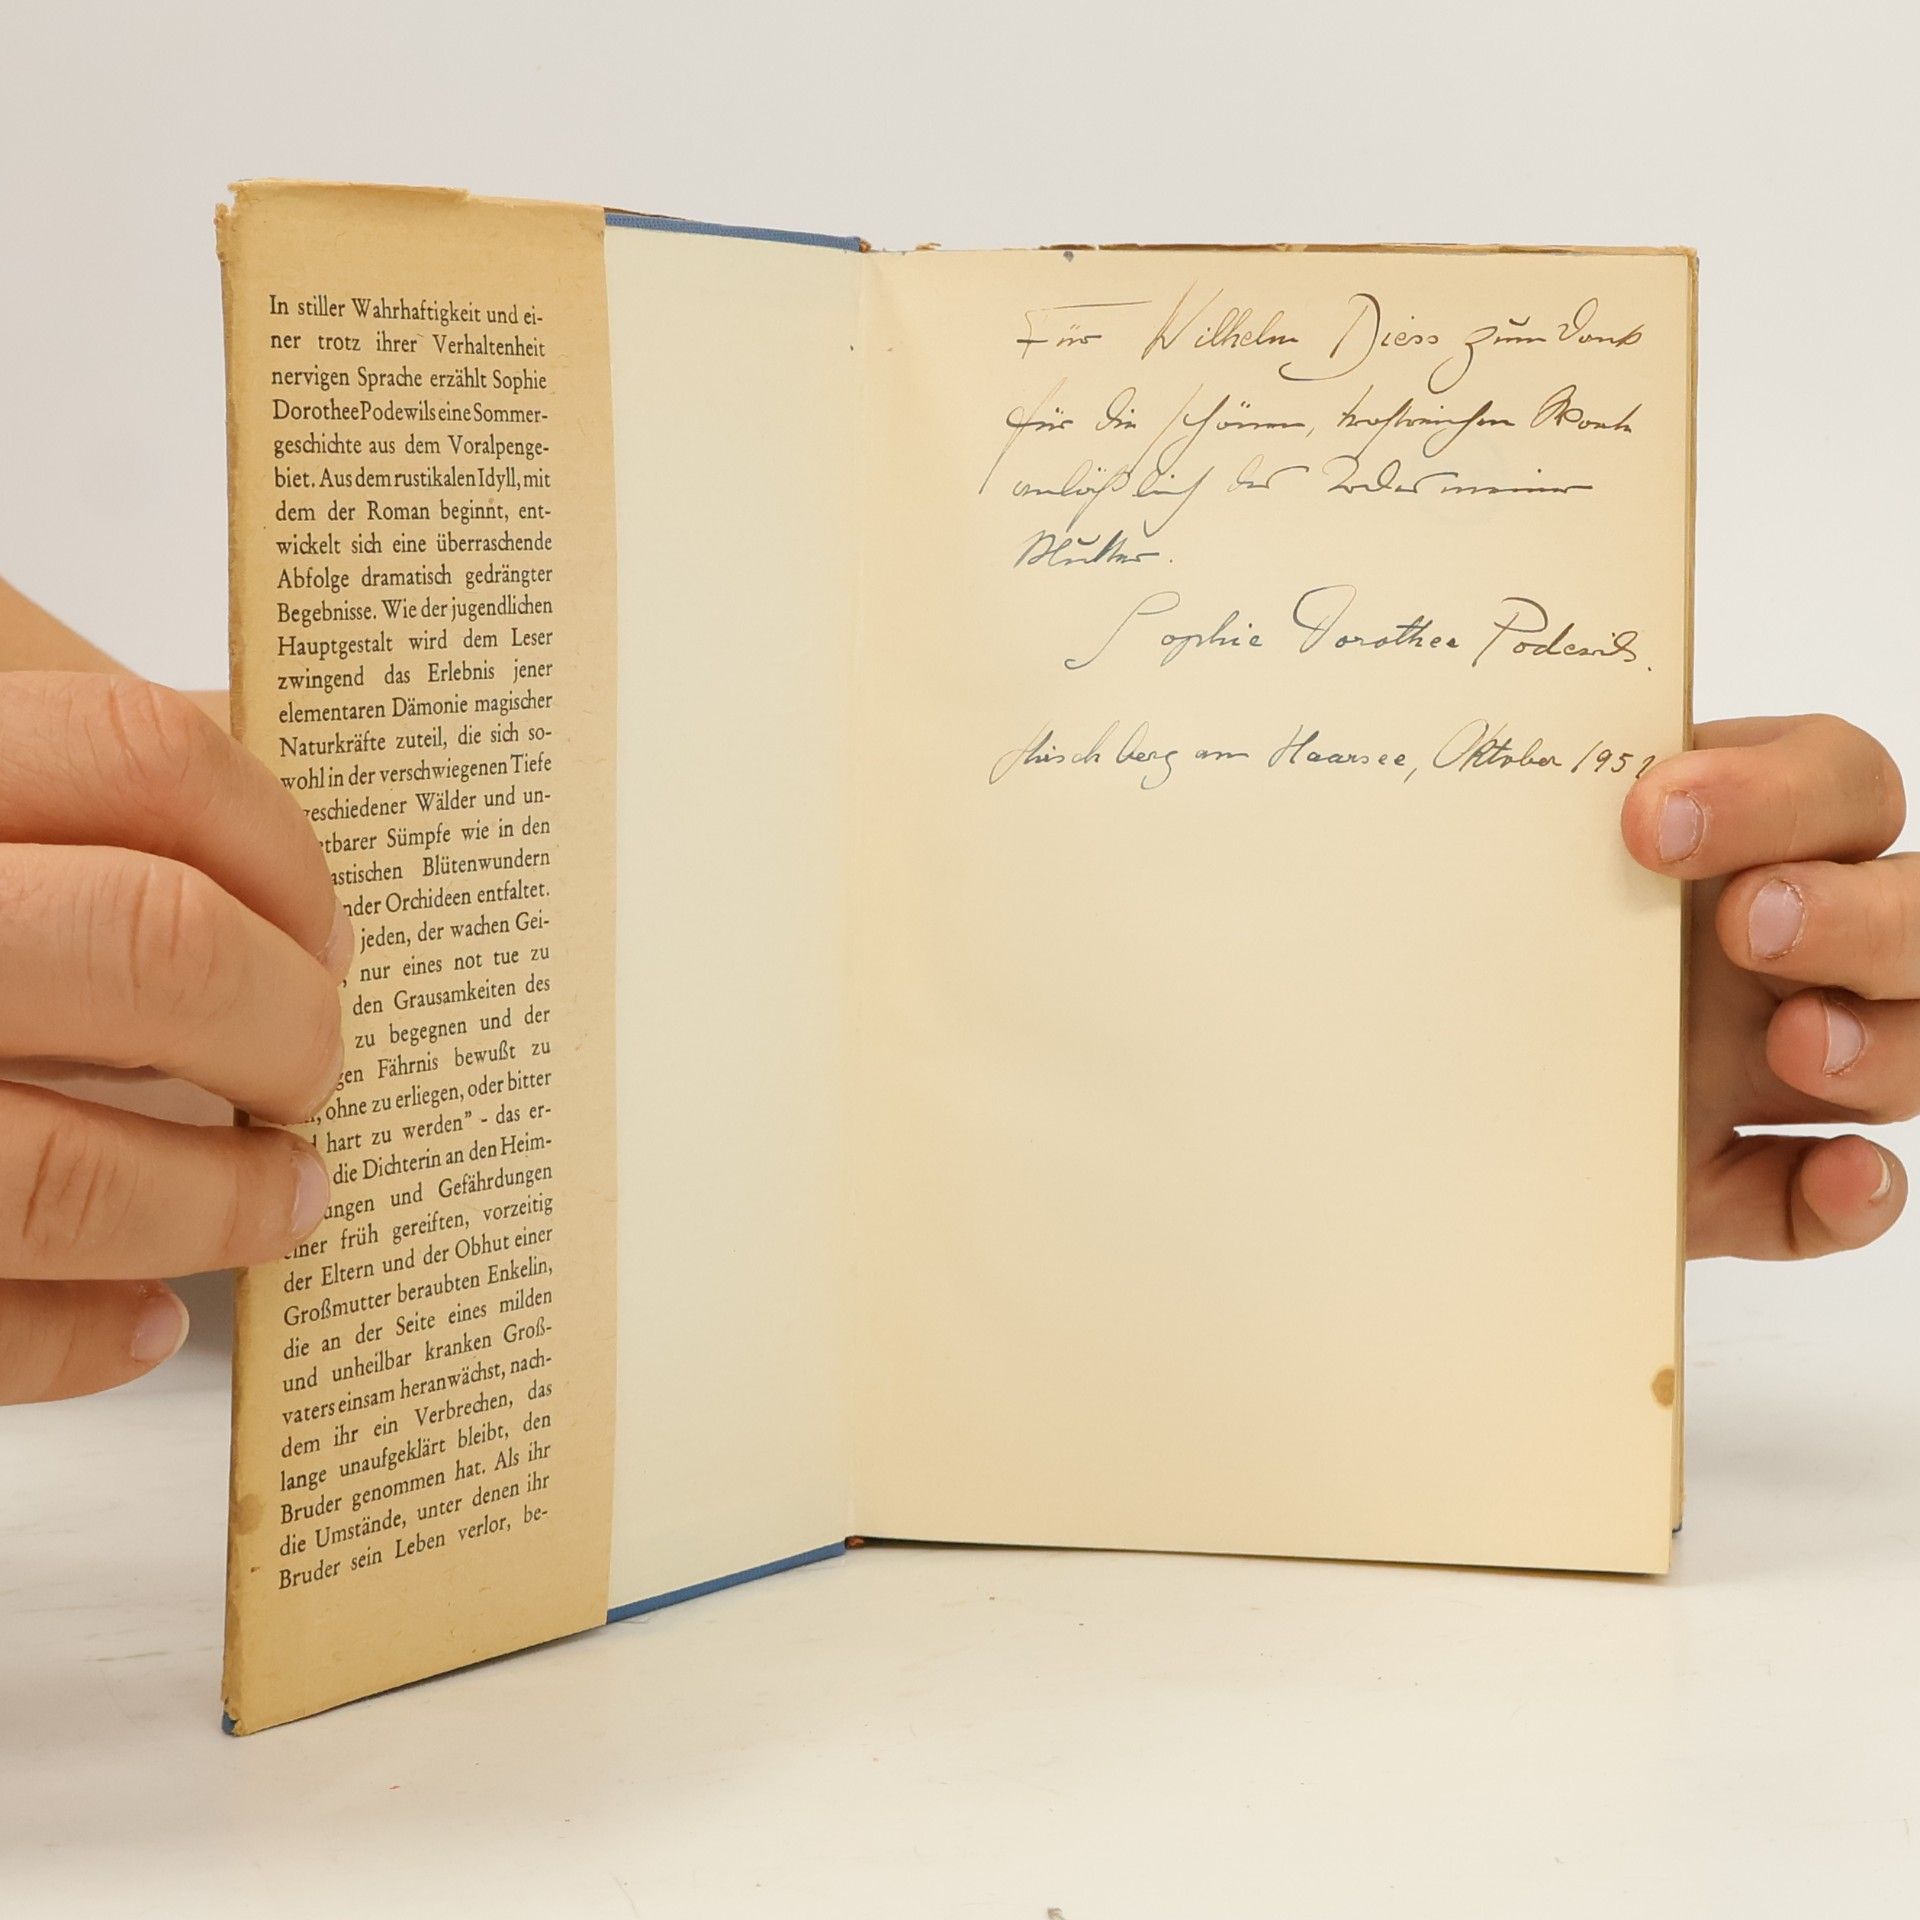 In stiller Wahrhaftigkeit und ei-
ner trotz ihrer Verhaltenheit
nervigen Sprache erzählt Sophie
Dorothee Podewils eine Sommer-
geschichte aus dem Voralpenge-
biet. Aus dem rustikalen Idyll, mit
dem der Roman beginnt, ent-
wickelt sich eine überraschende
Abfolge dramatisch gedrängter
Begebnisse. Wie der jugendlichen
Hauptgestalt wird dem Leser
zwingend das Erlebnis jener
elementaren Dämonie magischer
Naturkräfte zuteil, die sich so-
wohl in der verschwiegenen Tiefe
geschiedener Wälder und un-
tbarer Sümpfe wie in den
astischen Blütenwundern
nder Orchideen entfaltet.
jeden, der wachen Gei-
, nur eines not tue zu
den Grausamkeiten des
zu begegnen und der
gen Fährnis bewußt zu
, ohne zu erliegen, oder bitter
hart zu werden” - das er-
die Dichterin an den Heim-
ungen und Gefährdungen
einer früh gereiften, vorzeitig
der Eltern und der Obhut einer
Großmutter beraubten Enkelin,
die an der Seite eines milden
und unheilbar kranken Groß-
vaters einsam heranwächst, nach-
dem ihr ein Verbrechen, das
lange unaufgeklärt bleibt, den
Bruder genommen hat. Als ihr
die Umstände, unter denen ihr
Bruder sein Leben verlor, be-
Für Wilhelm Diess zum Dank
für die schönen, trostreichen Worte
anläßlich des Todes meiner
Mutter.
Sophie Dorothee Podewils.
Hirschberg am Haarsee, Oktober 195